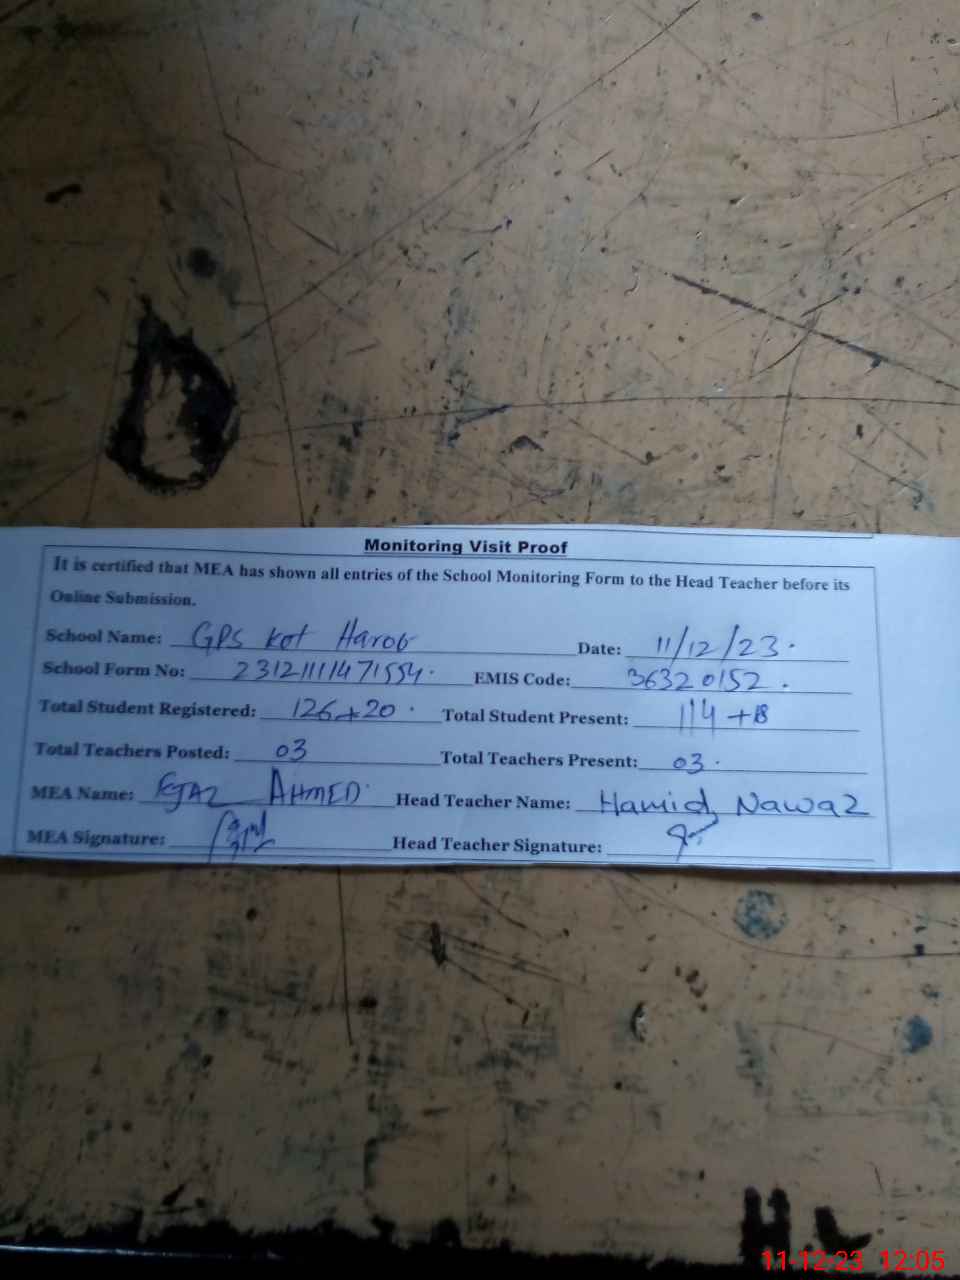 Monitoring Visit Proof
It is certified that MEA has shown all entries of the School Monitoring Form to the Head Teacher before its
Online Submission.
School Name: GPS kot Harob Date: 11/12/23.
School Form No: 23121111471554. EMIS Code: 36320152.
Total Student Registered: 126+20. Total Student Present: 114+18
Total Teachers Posted: 03 Total Teachers Present: 03.
MEA Name: EJAZ AHMED Head Teacher Name: Hamid Nawaz
MEA Signature: Head Teacher Signature:
H L
11-12-23 12:05